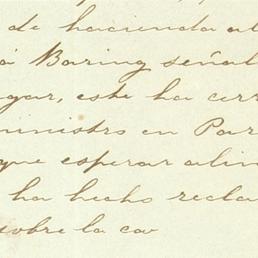 de hacienda al
á Baring señal
gar, este ha cerr
ministro en Par
que esperar alin
ha hecho recla
sobre la ca